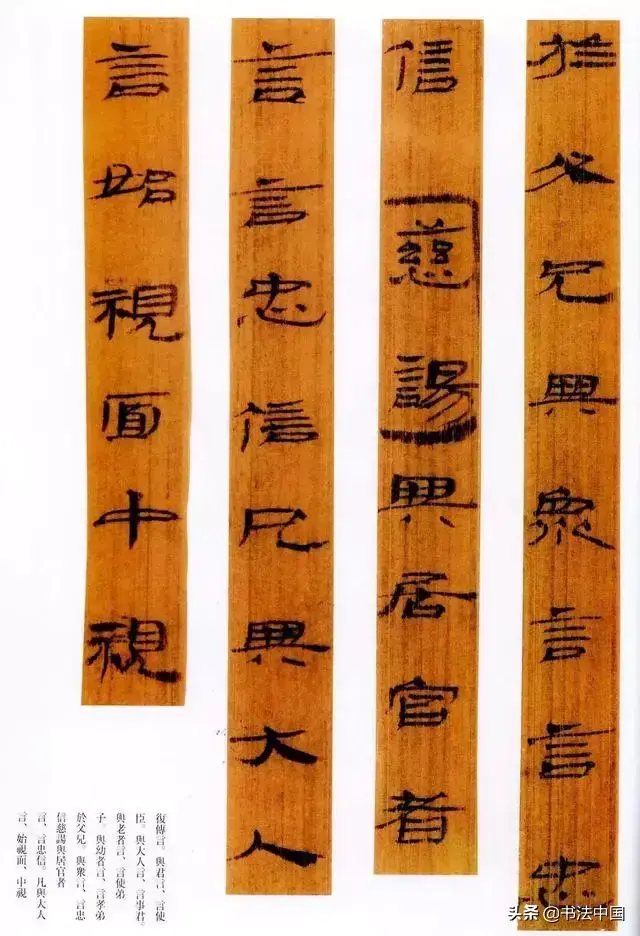 於父兄與眾言言忠
信慈諹與居官者
言言忠信凡與大人
言始視面中視
復傳言。與君言、言使
臣。與大人言、言事君。
與老者言、言使弟
子。與幼者言、言孝弟
於父兄。與衆言、言忠
信慈諹與居官者
言、言忠信。凡與大人
言、始視面、中視
头条 @书法中国